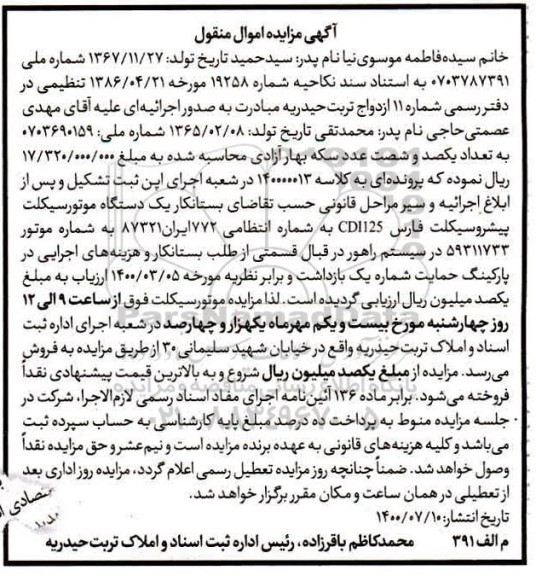 آگهی مزایده اموال منقول
خانم سیده‌فاطمه موسوی‌نیا نام پدر: سیدحمید تاریخ تولد: ۱۳۶۷/۱۱/۲۷ شماره ملی
۰۷۰۳۷۸۷۳۹۱ به استناد سند نکاحیه شماره ۱۹۲۵۸ مورخه ۱۳۸۶/۰۴/۲۱ تنظیمی در
دفتر رسمی شماره ۱۱ ازدواج تربت‌حیدریه مبادرت به صدور اجرائیه‌ای علیه آقای مهدی
عصمتی‌حاجی نام پدر: محمدتقی تاریخ تولد: ۱۳۶۵/۰۲/۰۸ شماره ملی: ۰۷۰۳۶۹۰۱۵۹
به تعداد یکصد و شصت عدد سکه بهار آزادی محاسبه شده به مبلغ ۱۷/۳۲۰/۰۰۰/۰۰۰
ریال نموده که پرونده‌ای به کلاسه ۱۴۰۰۰۰۰۱۳ در شعبه اجرای این ثبت تشکیل و پس از
ابلاغ اجرائیه و سیر مراحل قانونی حسب تقاضای بستانکار یک دستگاه موتورسیکلت
پیشروسیکلت فارس CDI125 به شماره انتظامی ۷۷۲ایران۸۷۳۲۱ به شماره موتور
۵۹۳۱۱۷۳۳ در سیستم راهور در قبال قسمتی از طلب بستانکار و هزینه‌های اجرایی در
پارکینگ حمایت شماره یک بازداشت و برابر نظریه مورخه ۱۴۰۰/۰۳/۰۵ ارزیاب به مبلغ
یکصد میلیون ریال ارزیابی گردیده است. لذا مزایده موتورسیکلت فوق از ساعت ۹ الی ۱۲
روز چهارشنبه مورخ بیست و یکم مهرماه یکهزار و چهارصد در شعبه اجرای اداره ثبت
اسناد و املاک تربت‌حیدریه واقع در خیابان شهید سلیمانی ۳۰ از طریق مزایده به فروش
می‌رسد. مزایده از مبلغ یکصد میلیون ریال شروع و به بالاترین قیمت پیشنهادی نقداً
فروخته می‌شود. برابر ماده ۱۳۶ آئین‌نامه اجرای مفاد اسناد رسمی لازم‌الاجرا، شرکت در
جلسه مزایده منوط به پرداخت ده درصد مبلغ پایه کارشناسی به حساب سپرده ثبت
می‌باشد و کلیه هزینه‌های قانونی به عهده برنده مزایده است و نیم‌عشر و حق مزایده نقداً
وصول خواهد شد. ضمناً چنانچه روز مزایده تعطیل رسمی اعلام گردد، مزایده روز اداری بعد
از تعطیلی در همان ساعت و مکان مقرر برگزار خواهد شد.
تاریخ انتشار: ۱۴۰۰/۰۷/۱۰
م الف ۳۹۱ محمدکاظم باقرزاده، رئیس اداره ثبت اسناد و املاک تربت‌حیدریه